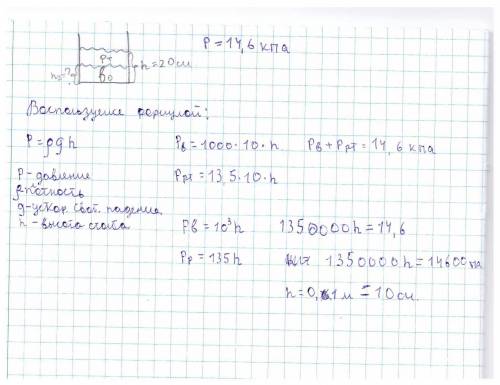 P = 14,6 кПа
Pт
h = 20 см
h₀ - ?
во
Воспользуемся формулой:
P = ρgh
Pв = 1000·10·h
Pв + Pрт = 14,6 кПа
P - давление
Pрт = 13,5·10·h
ρ - плотность
g - ускор. своб. падения
Pв = 10³h
1350000h = 14,6
h - высота столба
Pр = 135h
1350000h = 14600 Па
h = 0,1 м = 10 см.